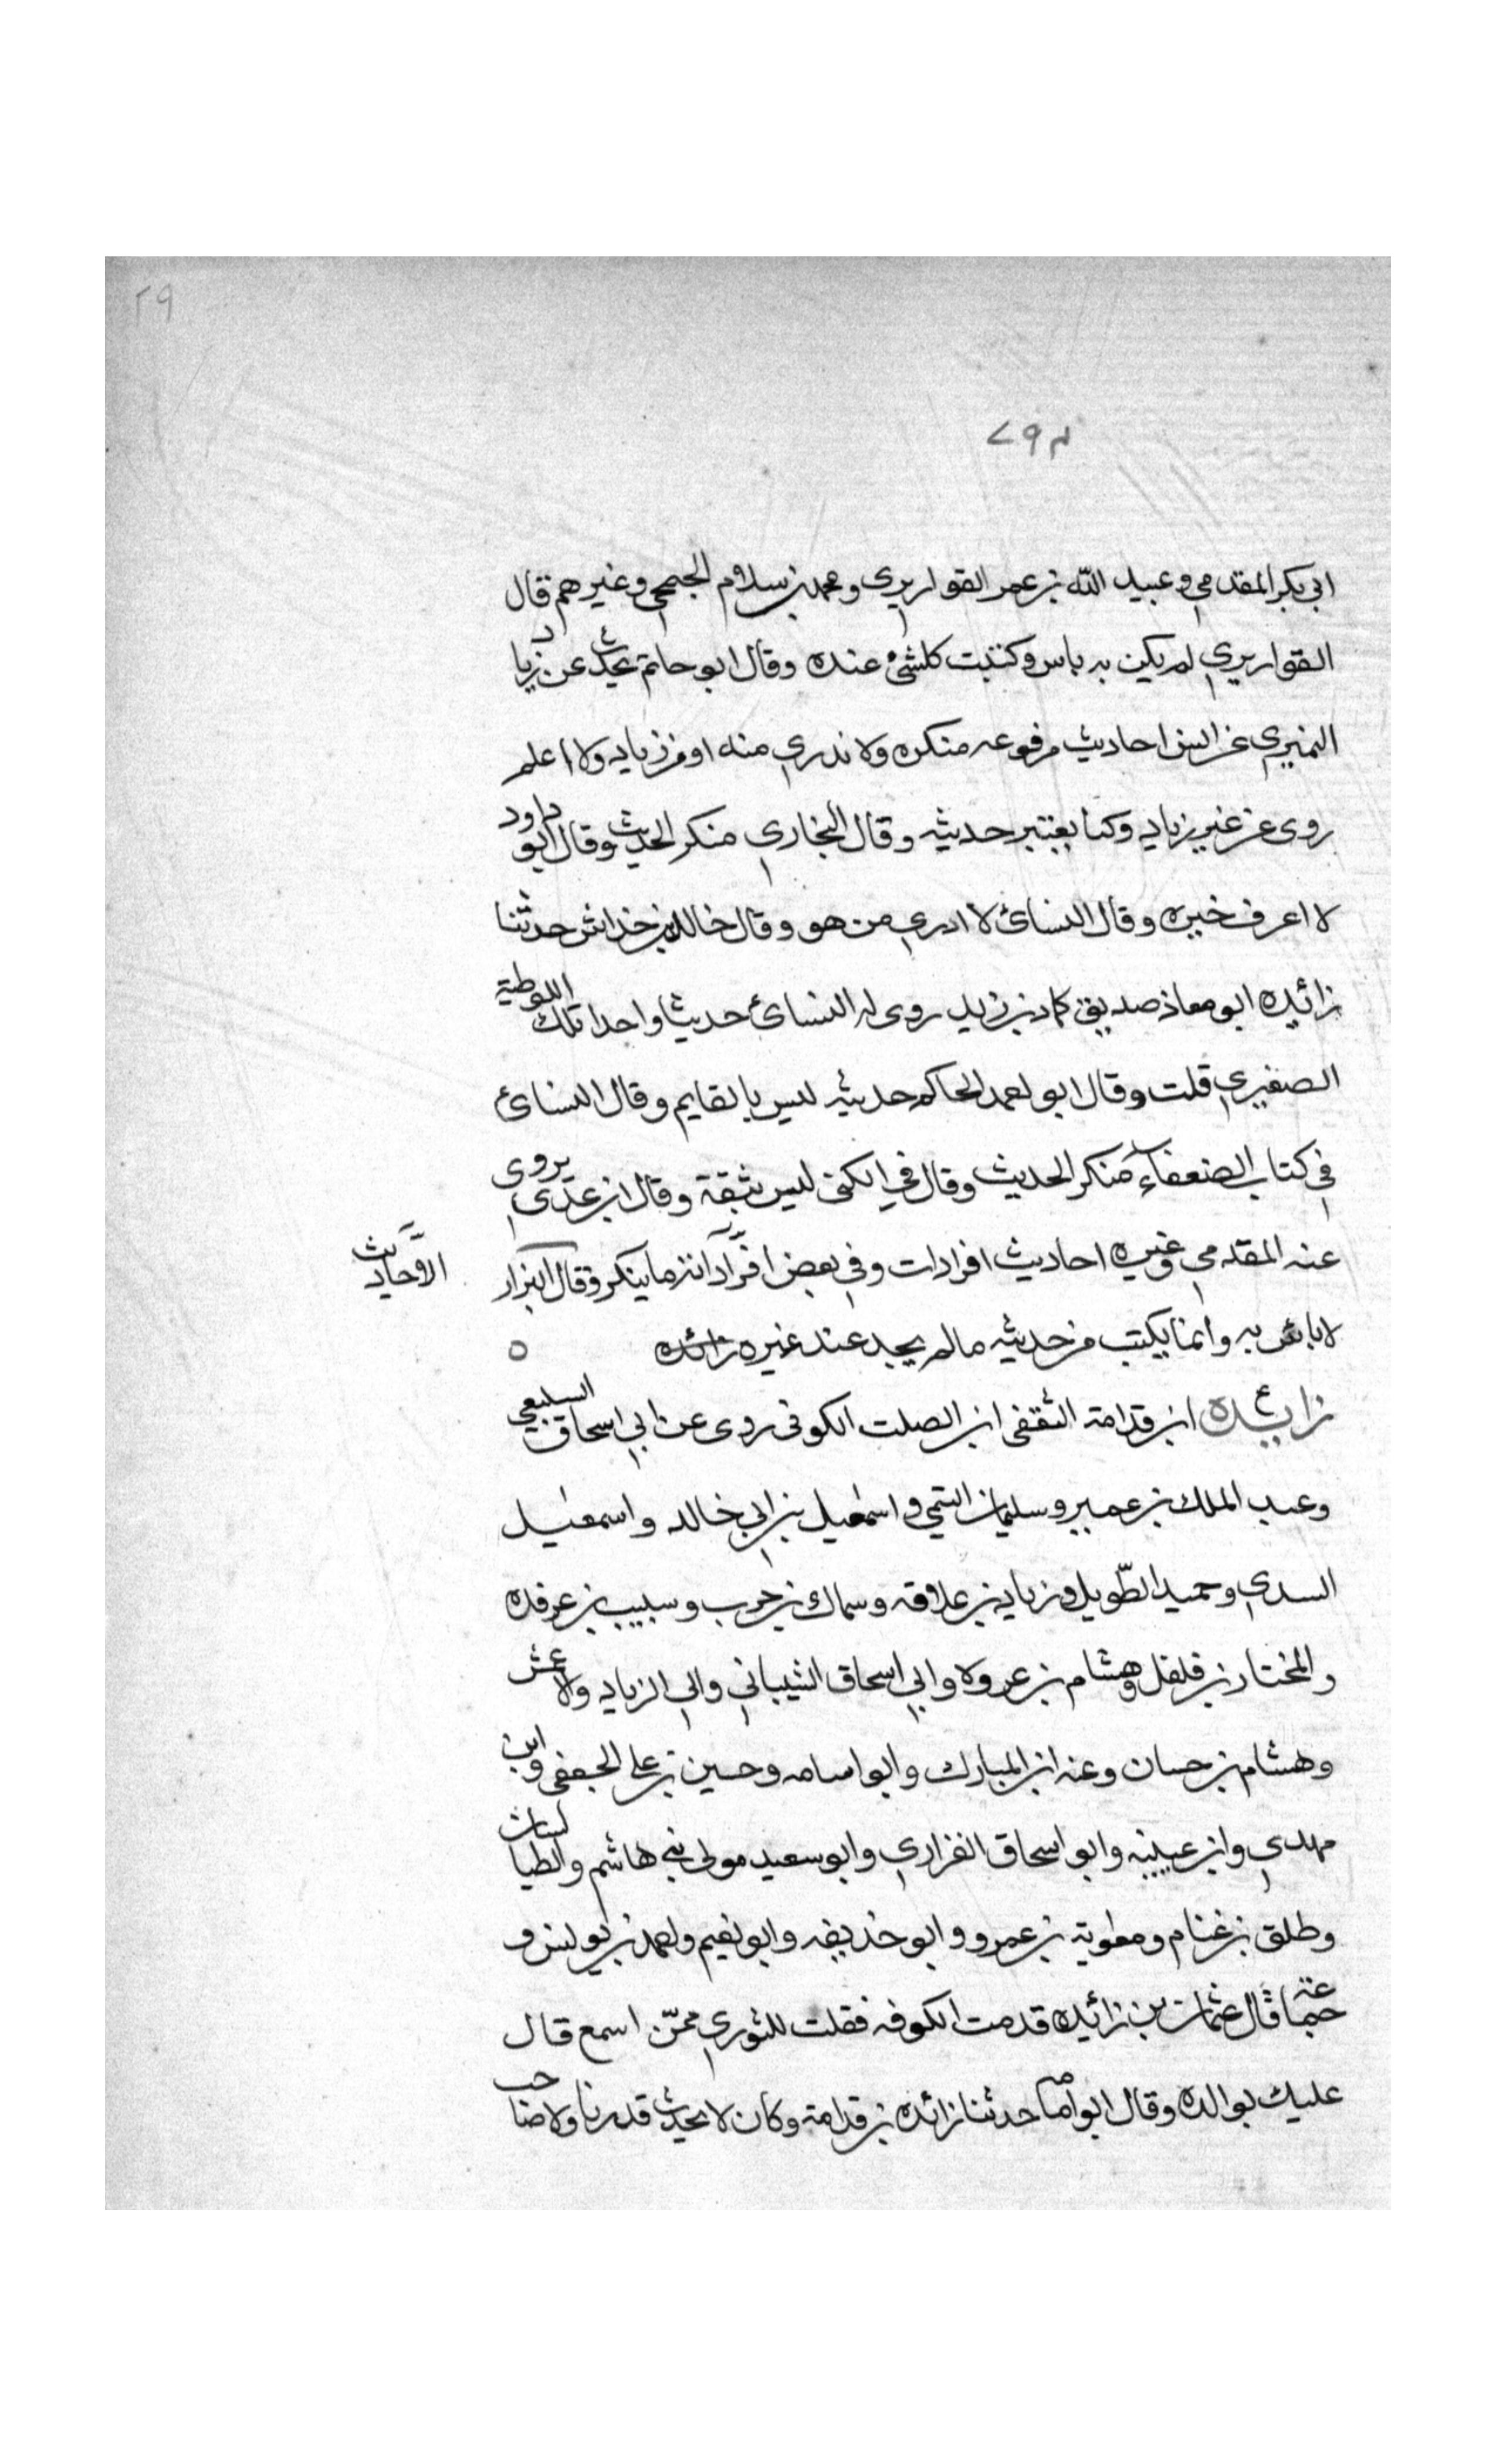 ٢٩
٢٩٣
ابي بكر المقدمي وعبيد الله بن عمر القواريري ومحمد بن سلام الجمحي وغيرهم قال
القواريري لم يكن به باس وكتبت كلشئ عنده وقال ابو حاتم يحدث عن زياد
النميري عن انس احاديث مرفوعه منكره ولا ندري منه او من زياد ولا اعلم
روى عن غير زياد وكنا نعتبر حديثه وقال البخاري منكر الحديث وقال ابو داود
لا اعرف خبره وقال النسائ لا ادري من هو وقال خالد بن خداش حدثنا
زائده ابو معاذ صديق كماد بن زيد روى له النسائ حديثا واحدا تلك اللوطية
الصغيري قلت وقال ابو احمد الحاكم حديثه ليس بالقايم وقال النسائ
في كتاب الضعفاء منكر الحديث وقال في الكنى ليس بثقة وقال ابن عدي يروى
عنه المقدمي وغيره احاديث افرادات وفي بعض افرادانه ما ينكر وقال البزار
الاحاديث
لا باس به وانما يكتب من حديثه مالم يجد عند غيره زائده ٥
زايده ابن قدامة الثقفى ابن الصلت الكوفى روى عن ابي اسحاق السبيعي
وعبد الملك بن عمير وسليمان التيمي واسمعيل بن ابي خالد واسمعيل
السدي وحميد الطّويل وزياد بن علاقه وسماك بن حرب وسبيب بن عرفده
والمختار بن فلفل وهشام بن عروة وابي اسحاق الشيباني وابي الزياد والاعمش
وهشام بن حسان وعنه ابن المبارك وابو اسامه وحسين بن علي الجعفى وابن
مهدي وابن عيينه وابو اسحاق الفزاري وابو سعيد مولى بني هاشم والطيالسيان
وطلق بن غنام ومعوية بن عمرو وابو حذيفه وابو نعيم واحمد بن يونس و
جماعة قال عثمان بن زائيده قدمت الكوفه فقلت للثوري ممّن اسمع قال
عليك بوالده وقال ابو اسامه حدثنا زائده بن قدامة وكان لا يحدث قدريا ولا صاحب